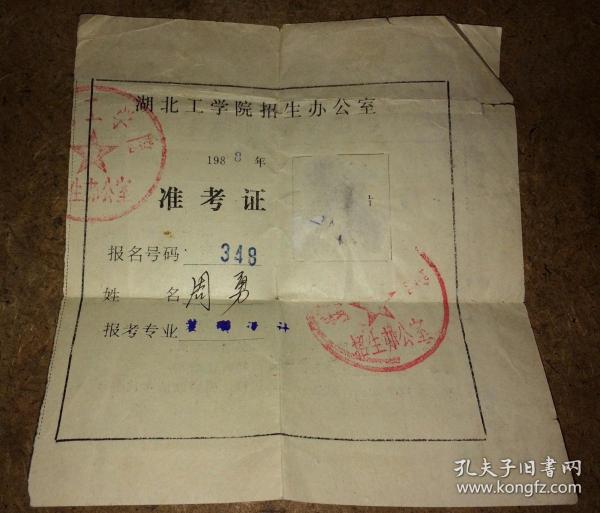 湖北工学院招生办公室
1988年
准考证
报名号码 348
姓名 周勇
报考专业 装璜设计
招生办公室
生办公室
孔夫子旧书网
www.kongfz.com